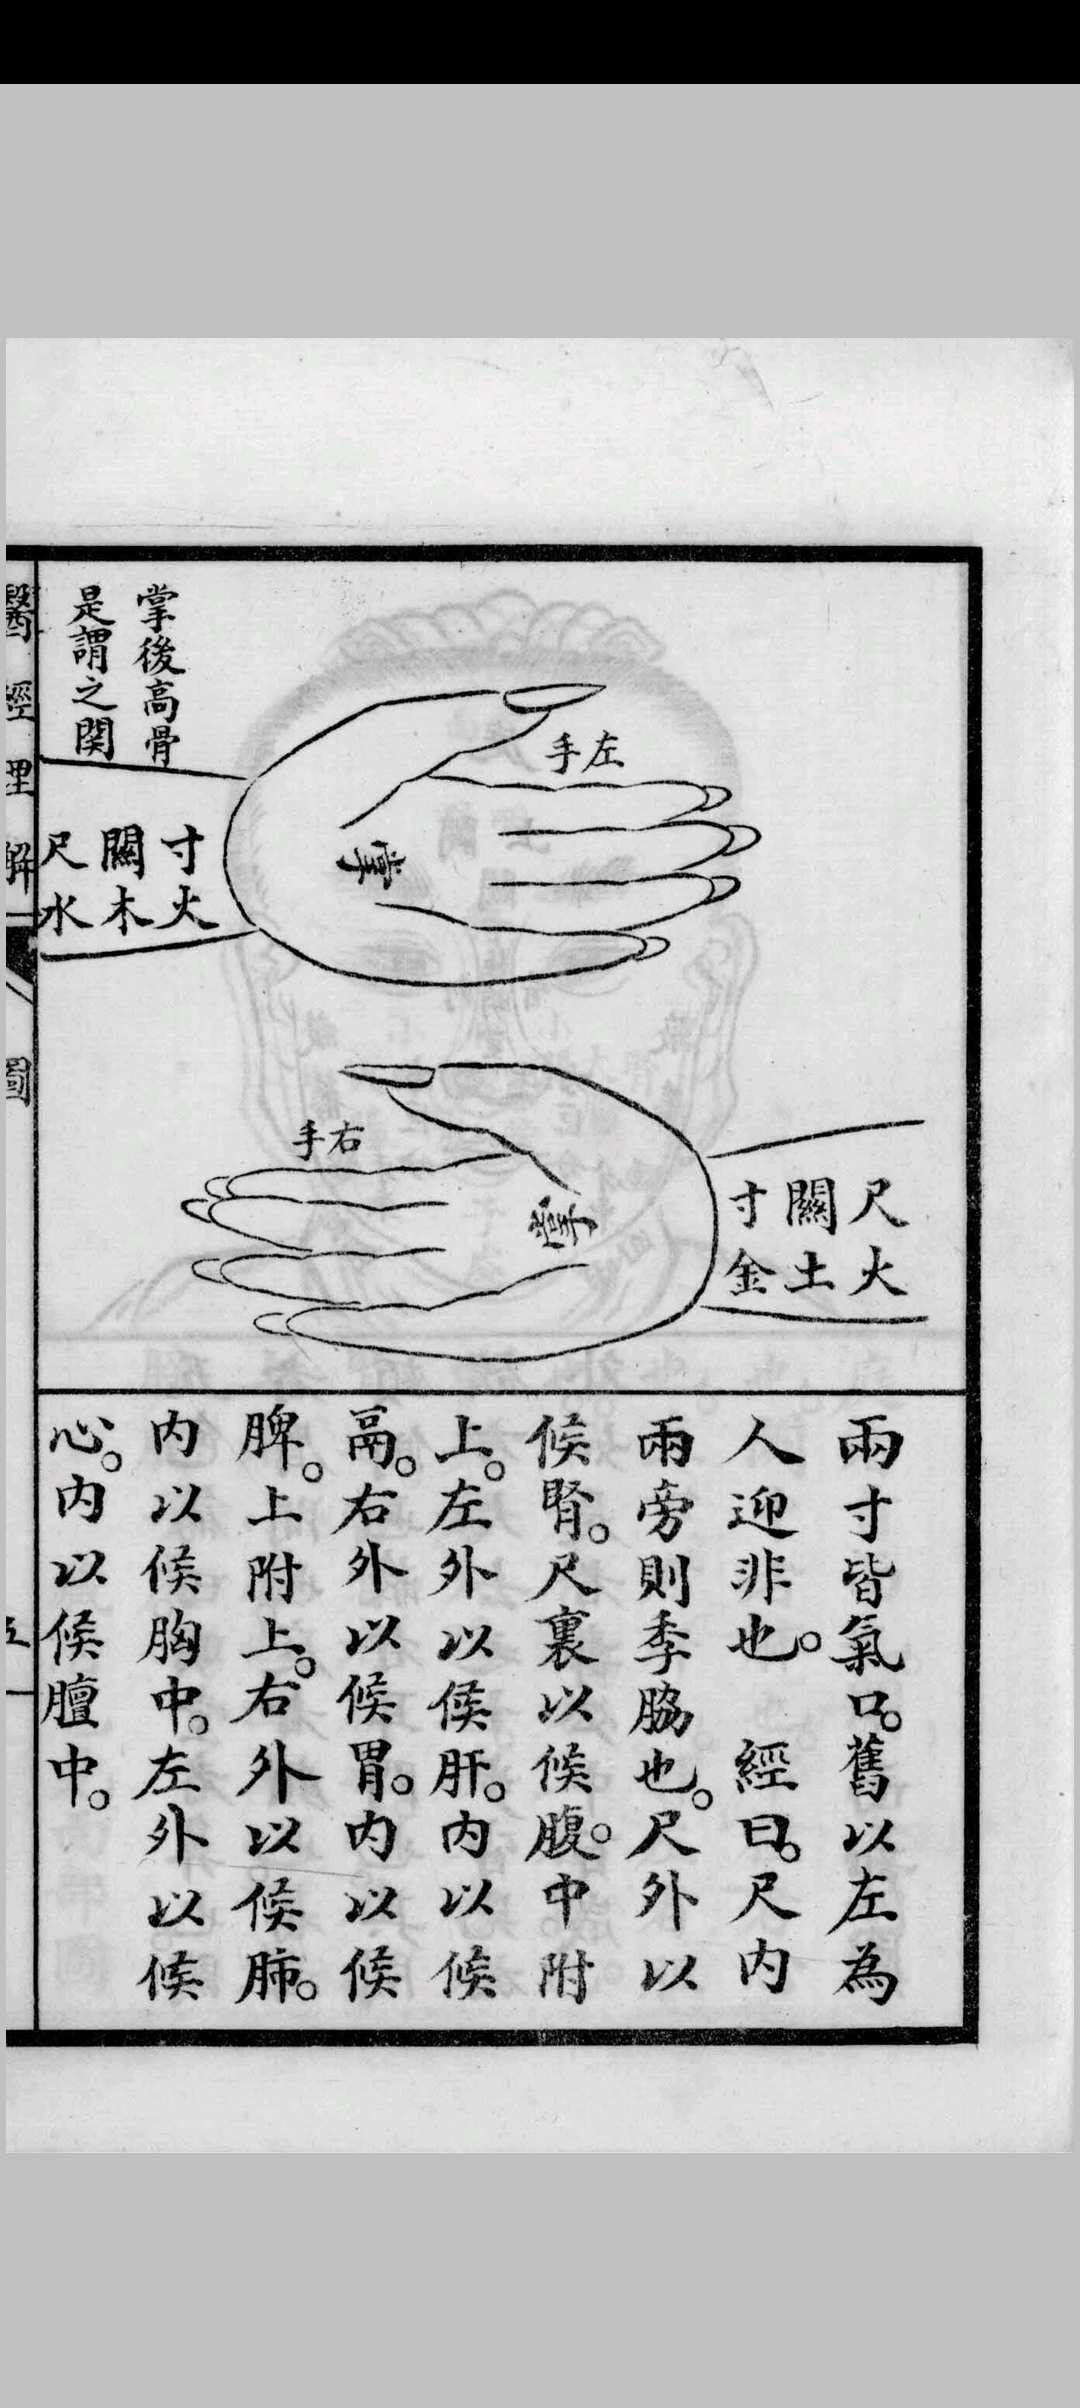 掌後高骨
是謂之関
左手
掌
寸關尺
火木水
右手
掌
尺關寸
火土金
兩寸皆氣口。舊以左為
人迎非也。　經曰。尺内
兩旁則季脇也。尺外以
候腎。尺裏以候腹。中附
上。左外以候肝。内以候
鬲。右外以候胃。内以候
脾。上附上。右外以候肺。
内以候胸中。左外以候
心。内以候膻中。
醫經理解
圖
五